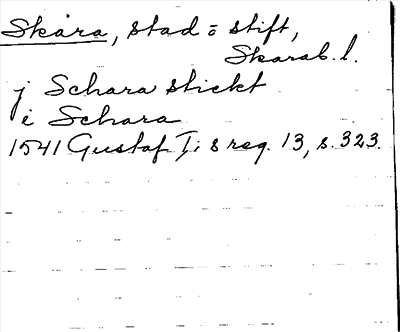 Skara, stad o stift,
Skarab. l.
j Schara stickt
i Schara
1541 Gustaf I:s reg. 13, s. 323.